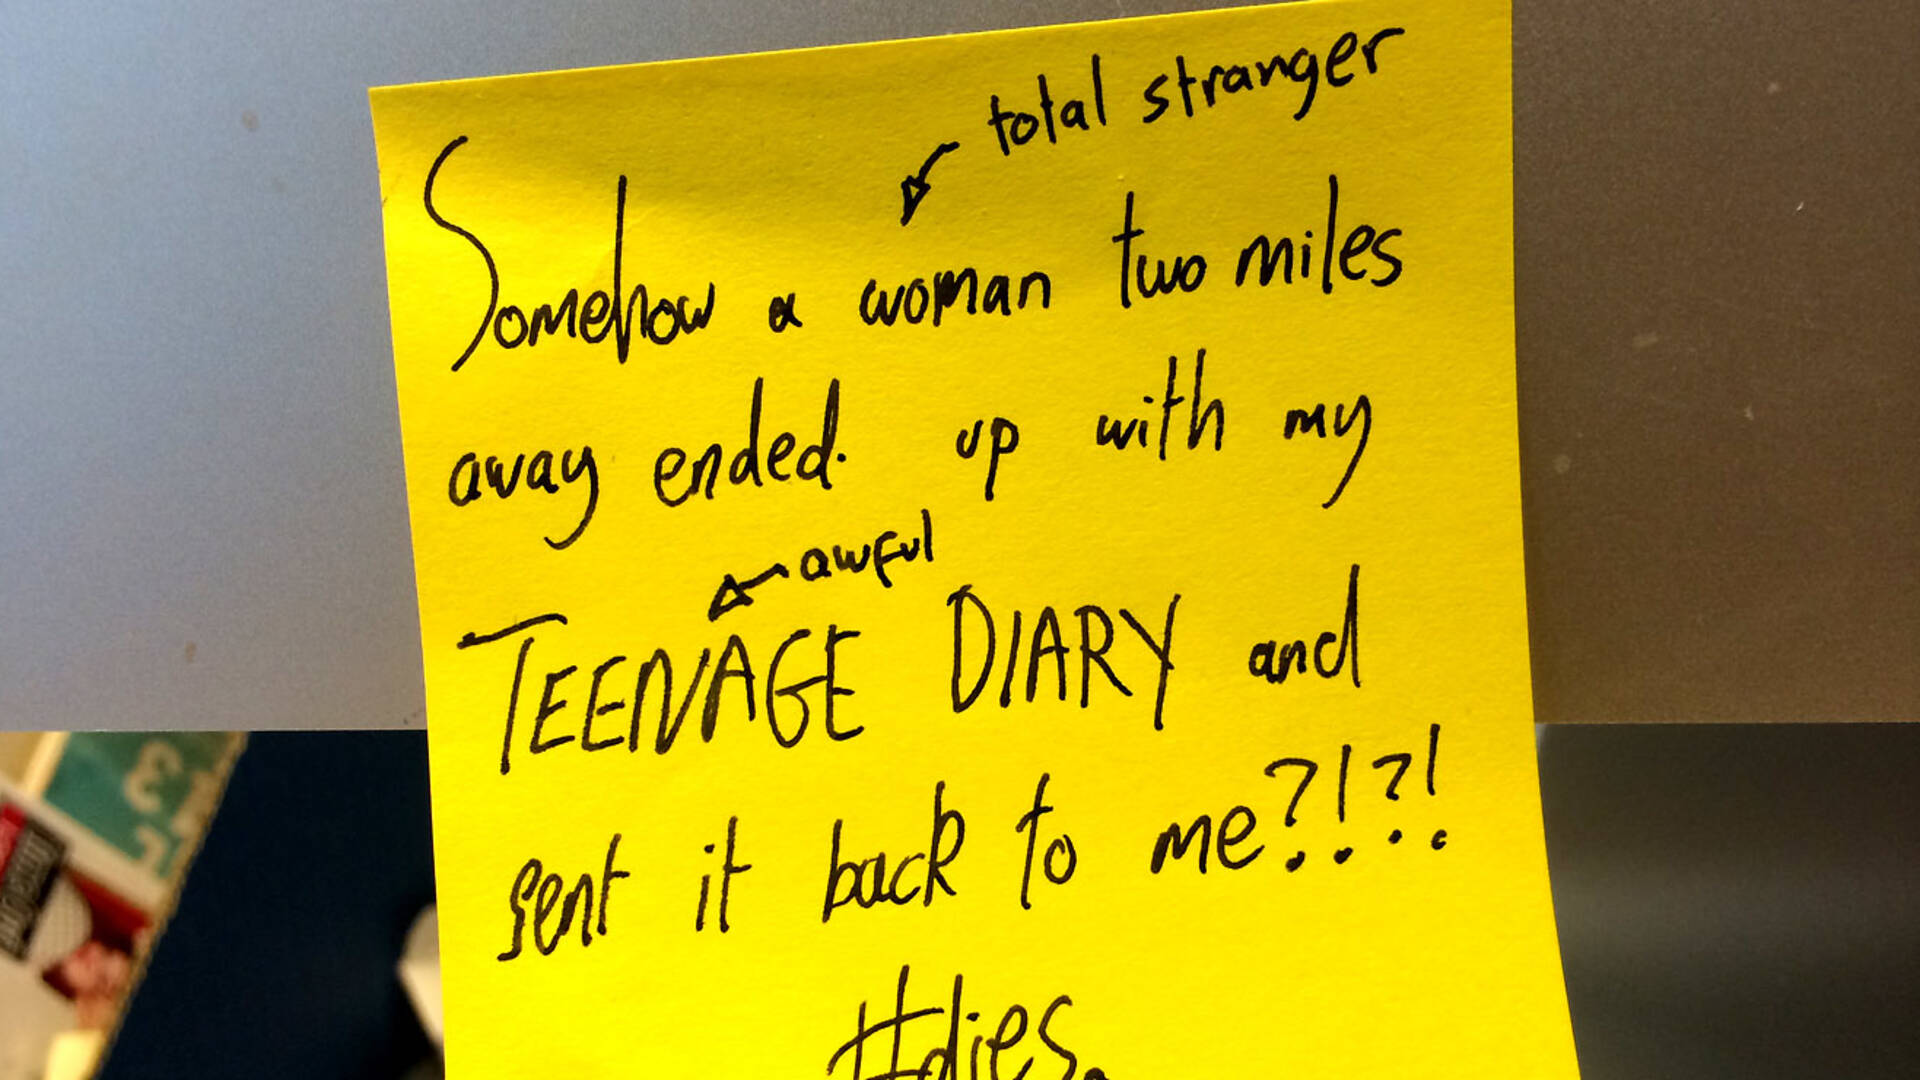 total stranger
Somehow a woman two miles
away ended. up with my
awful
TEENAGE DIARY and
sent it back to me?!?!
#dies.